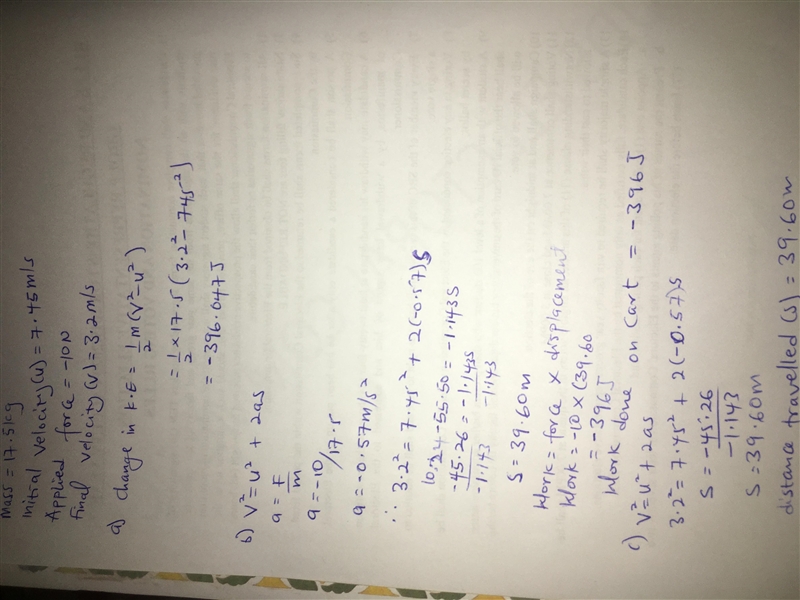 Mass = 17.5kg
Initial velocity(u) = 7.45m/s
Applied force = -10N
Final velocity(v) = 3.2m/s
a) Change in K.E = 1/2 m(v²-u²)
= 1/2 × 17.5 (3.2² - 7.45²)
= -396.047J
b) v² = u² + 2as
a = F/m
a = -10/17.5
a = -0.57m/s²
∴ 3.2² = 7.45² + 2(-0.57)s
10.24-55.50 = -1.143S
-45.26/-1.143 = -1.143S/-1.143
S = 39.60m
Work = force × displacement
Work = -10 × (39.60
= -396J
Work done on cart = -396J
c) v² = u² + 2as
3.2² = 7.45² + 2(-0.57)s
S = -45.26/-1.143
S = 39.60m
distance travelled (s) = 39.60m